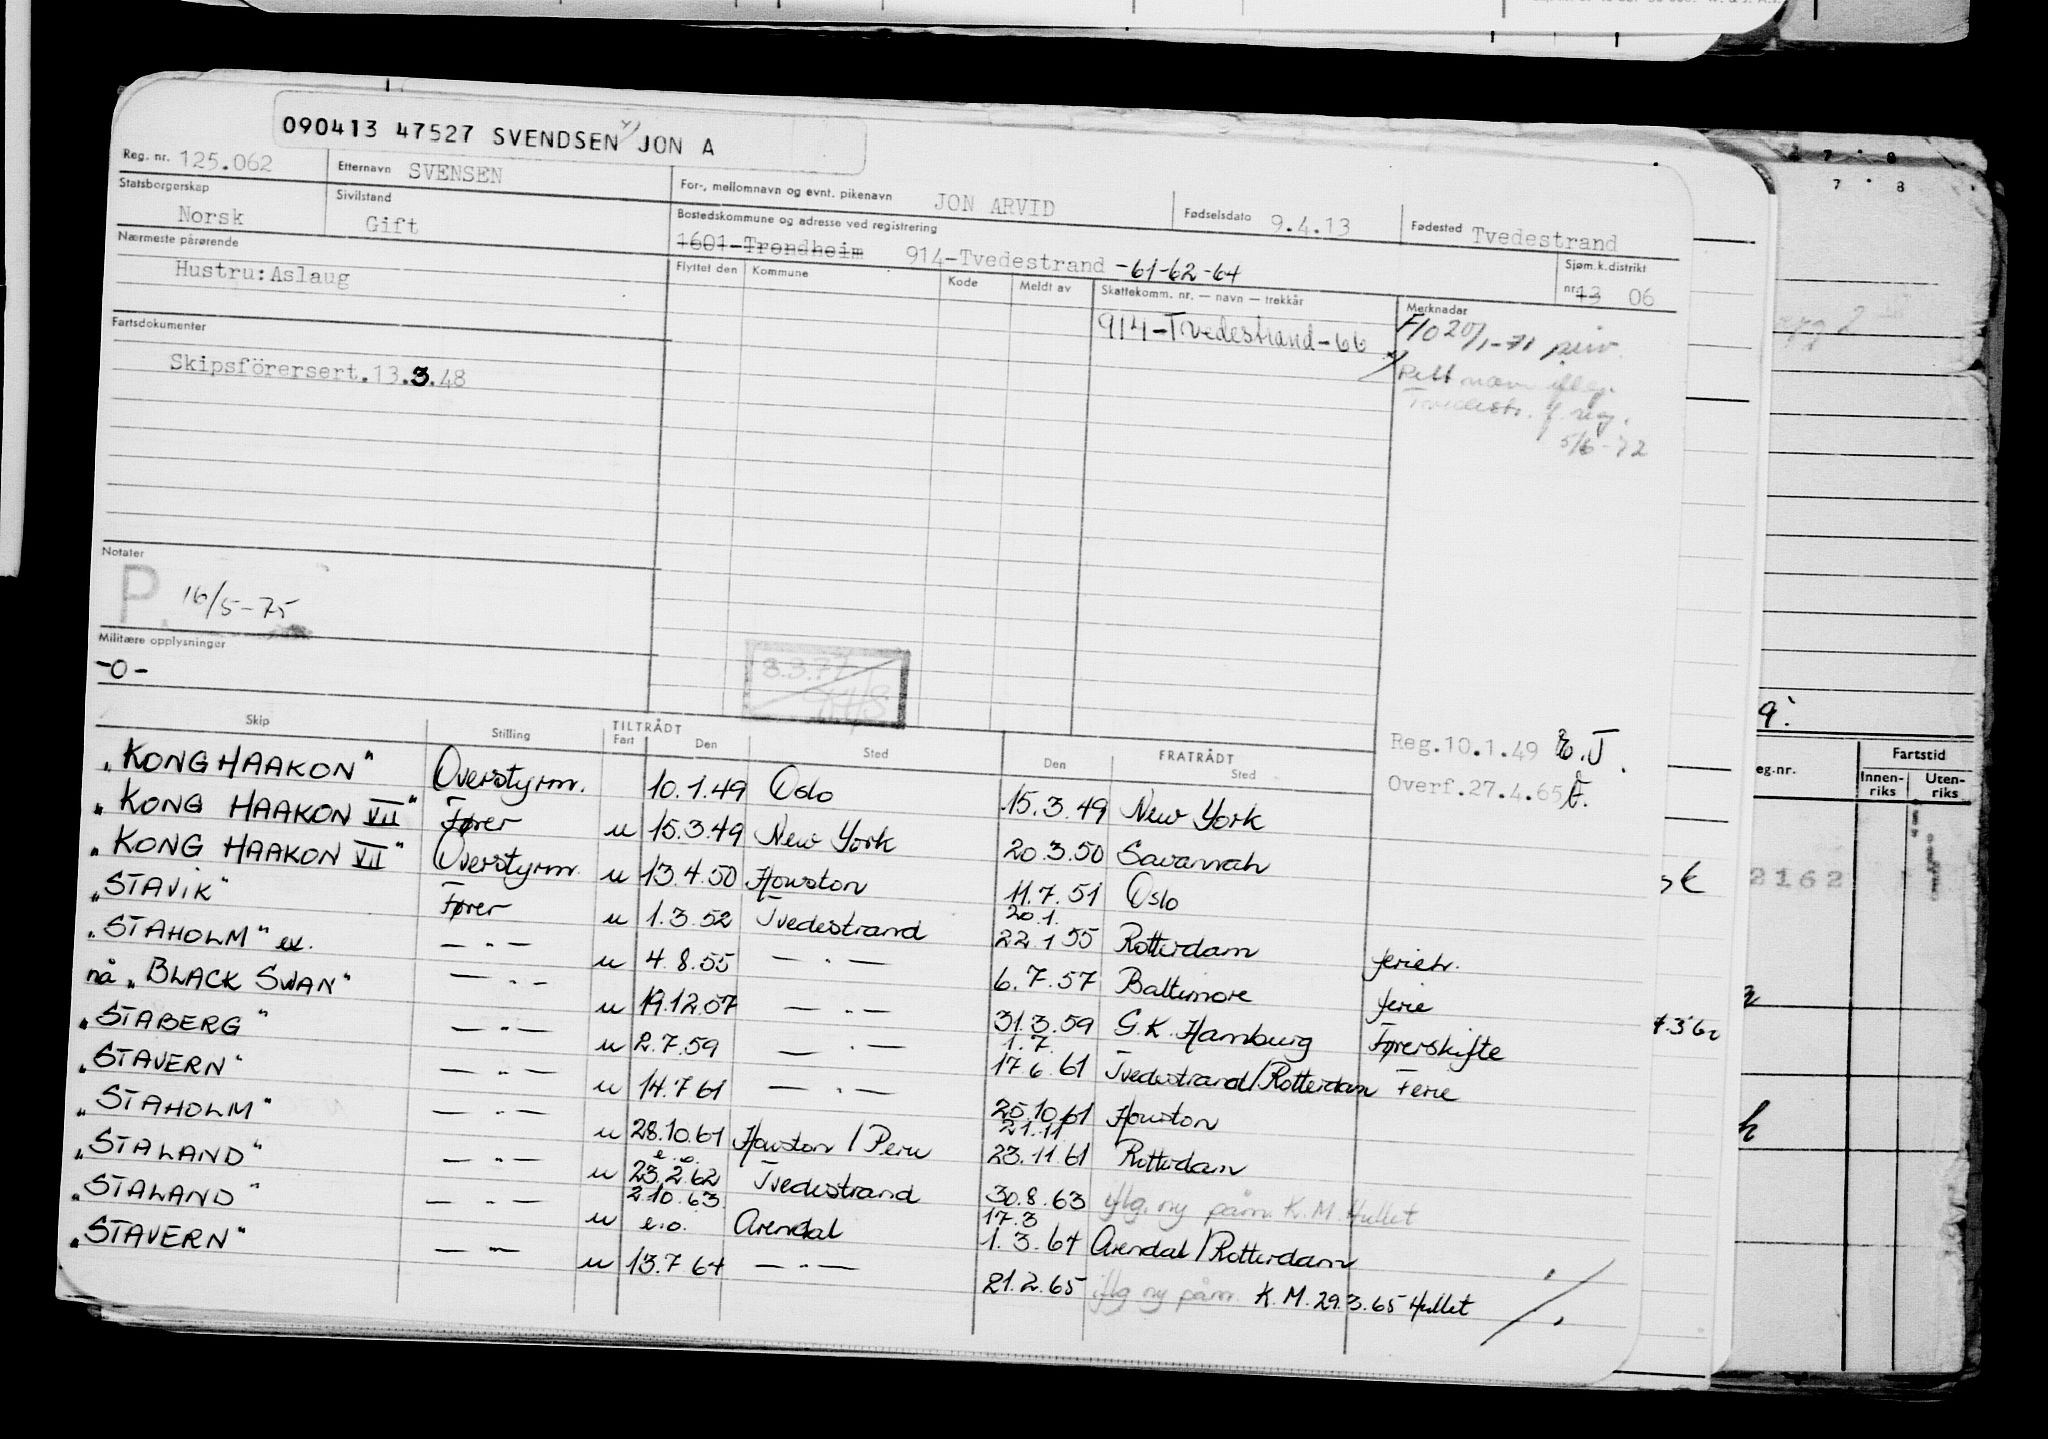 090413 47527 SVENDSEN JON A
Reg. nr. 125.062 Etternavn SVENSEN For-, mellomnavn og evnt. pikenavn JON ARVID Fødselsdato 9.4.13 Fødested Tvedestrand
Statsborgerskap Norsk Sivilstand Gift Bostedskommune og adresse ved registrering 1601-Trondheim 914-Tvedestrand -61-62-64 Sjøm.k.distrikt nr. 13 06
Nærmeste pårørende Hustru: Aslaug Flyttet den Kommune Kode Meldt av Skattekomm. nr. — navn — trekkår Merknader
914-Tvedestrand-66 F/O 20/1-71
Fartsdokumenter
Rett navn iflg.
Tvedestr. f. reg.
5/6-72
Skipsförersert.13.3.48
Notater
P. 16/5-75
Militære opplysninger
-0-
3.3.77
Reg.10.1.49
Overf.27.4.65
Skip Stilling TILTRÅDT Fart Den Sted FRATRÅDT Den Sted
"KONG HAAKON" Overstyrm. 10.1.49 Oslo 15.3.49 New York
"KONG HAAKON VII" Fører u 15.3.49 New York 20.3.50 Savannah
"KONG HAAKON VII" Overstyrm. u 13.4.50 Houston 11.7.51 Oslo
"STAVIK" Fører u 1.3.52 Tvedestrand 20.1. 22.1 55 Rotterdam feriet.
"STAHOLM" ex. — " — u 4.8.55 — " — 6.7.57 Baltimore ferie
nå "BLACK SWAN" — " — u 19.12.57 — " — 31.3.59 G.K. Hamburg Førerskifte
"STABERG" — " — u 2.7.59 — " — 1.7. 17.6.61 Tvedestrand/Rotterdam Ferie
"STAVERN" — " — u 14.7.61 — " — 25.10.61 Houston
"STAHOLM" — " — u 28.10.61 Houston / Peru 21.11 23.11.61 Rotterdam
"STALAND" — " — u e.o. 23.2.62 Tvedestrand 30.8.63 iflg. ny påm. K.M. Hullet
"STALAND" — " — u 2.10.63 e.o. Arendal 17.3 1.3.64 Arendal/Rotterdam
"STAVERN" — " — u 13.7.64 — " — 21.2.65 iflg ny påm. K.M. 29.3.65 Hullet
7 8
7 8
9.
eg.nr. Fartstid
Innen-riks Uten-riks
2162